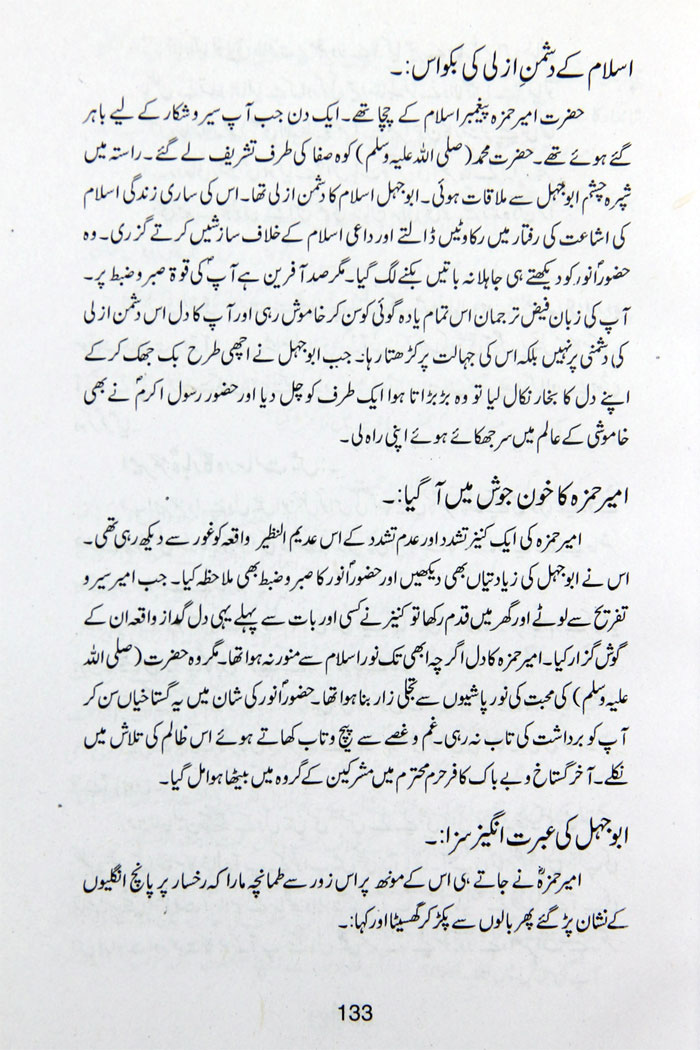 اسلام کے دشمنِ ازلی کی بکواس:۔
حضرت امیر حمزہ پیغمبر اسلام کے چچا تھے۔ ایک دن جب آپ سیر و شکار کے لیے باہر
گئے ہوئے تھے۔ حضرت محمد (صلی اللہ علیہ وسلم) کوہ صفا کی طرف تشریف لے گئے۔ راستہ میں
شپرہ چشم ابوجہل سے ملاقات ہوئی۔ ابوجہل اسلام کا دشمن ازلی تھا۔ اس کی ساری زندگی اسلام
کی اشاعت کی رفتار میں رکاوٹیں ڈالتے اور داعی اسلام کے خلاف سازشیں کرتے گزری۔ وہ
حضور انورؐ کو دیکھتے ہی جاہلانہ باتیں بکنے لگ گیا۔ مگر صد آفرین ہے آپؐ کی قوۃ صبر و ضبط پر۔
آپ کی زبان فیض ترجمان اس تمام یادہ گوئی کو سن کر خاموش رہی اور آپ کا دل اس دشمن ازلی
کی دشمنی پر نہیں بلکہ اس کی جہالت پر کڑھتا رہا۔ جب ابوجہل نے اچھی طرح بک جھک کر کے
اپنے دل کا بخار نکال لیا تو وہ بڑبڑاتا ہوا ایک طرف کو چل دیا اور حضور رسول اکرمؐ نے بھی
خاموشی کے عالم میں سر جھکائے ہوئے اپنی راہ لی۔
امیر حمزہ کا خون جوش میں آ گیا:۔
امیر حمزہ کی ایک کنیز تشدد اور عدم تشدد کے اس عدیم النظیر واقعہ کو غور سے دیکھ رہی تھی۔
اس نے ابوجہل کی زیادتیاں بھی دیکھیں اور حضور انورؐ کا صبر و ضبط بھی ملاحظہ کیا۔ جب امیر سیر و
تفریح سے لوٹے اور گھر میں قدم رکھا تو کنیز نے کسی اور بات سے پہلے یہی دل گداز واقعہ ان کے
گوش گزار کیا۔ امیر حمزہ کا دل اگرچہ ابھی تک نور اسلام سے منور نہ ہوا تھا۔ مگر وہ حضرت (صلی اللہ
علیہ وسلم) کی محبت کی نور پاشیوں سے تجلی زار بنا ہوا تھا۔ حضور انورؐ کی شان میں یہ گستاخیاں سن کر
آپ کو برداشت کی تاب نہ رہی۔ غم و غصے سے پیچ و تاب کھاتے ہوئے اس ظالم کی تلاش میں
نکلے۔ آخر گستاخ و بے باک کافر حرم محترم میں مشرکین کے گروہ میں بیٹھا ہوا مل گیا۔
ابوجہل کی عبرت انگیز سزا:۔
امیر حمزہؓ نے جاتے ہی اس کے مونھ پر اس زور سے طمانچہ مارا کہ رخسار پر پانچ انگلیوں
کے نشان پڑ گئے پھر بالوں سے پکڑ کر گھسیٹا اور کہا:۔
133